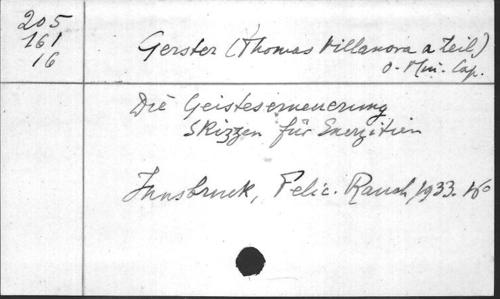 205
161
16
Gerster (Thomas Villanova a Zeil)
O. Min. Cap.
Die Geisteserneuerung
Skizzen für Exerzitien
Innsbruck, Felic. Rauch, 1933. 16º